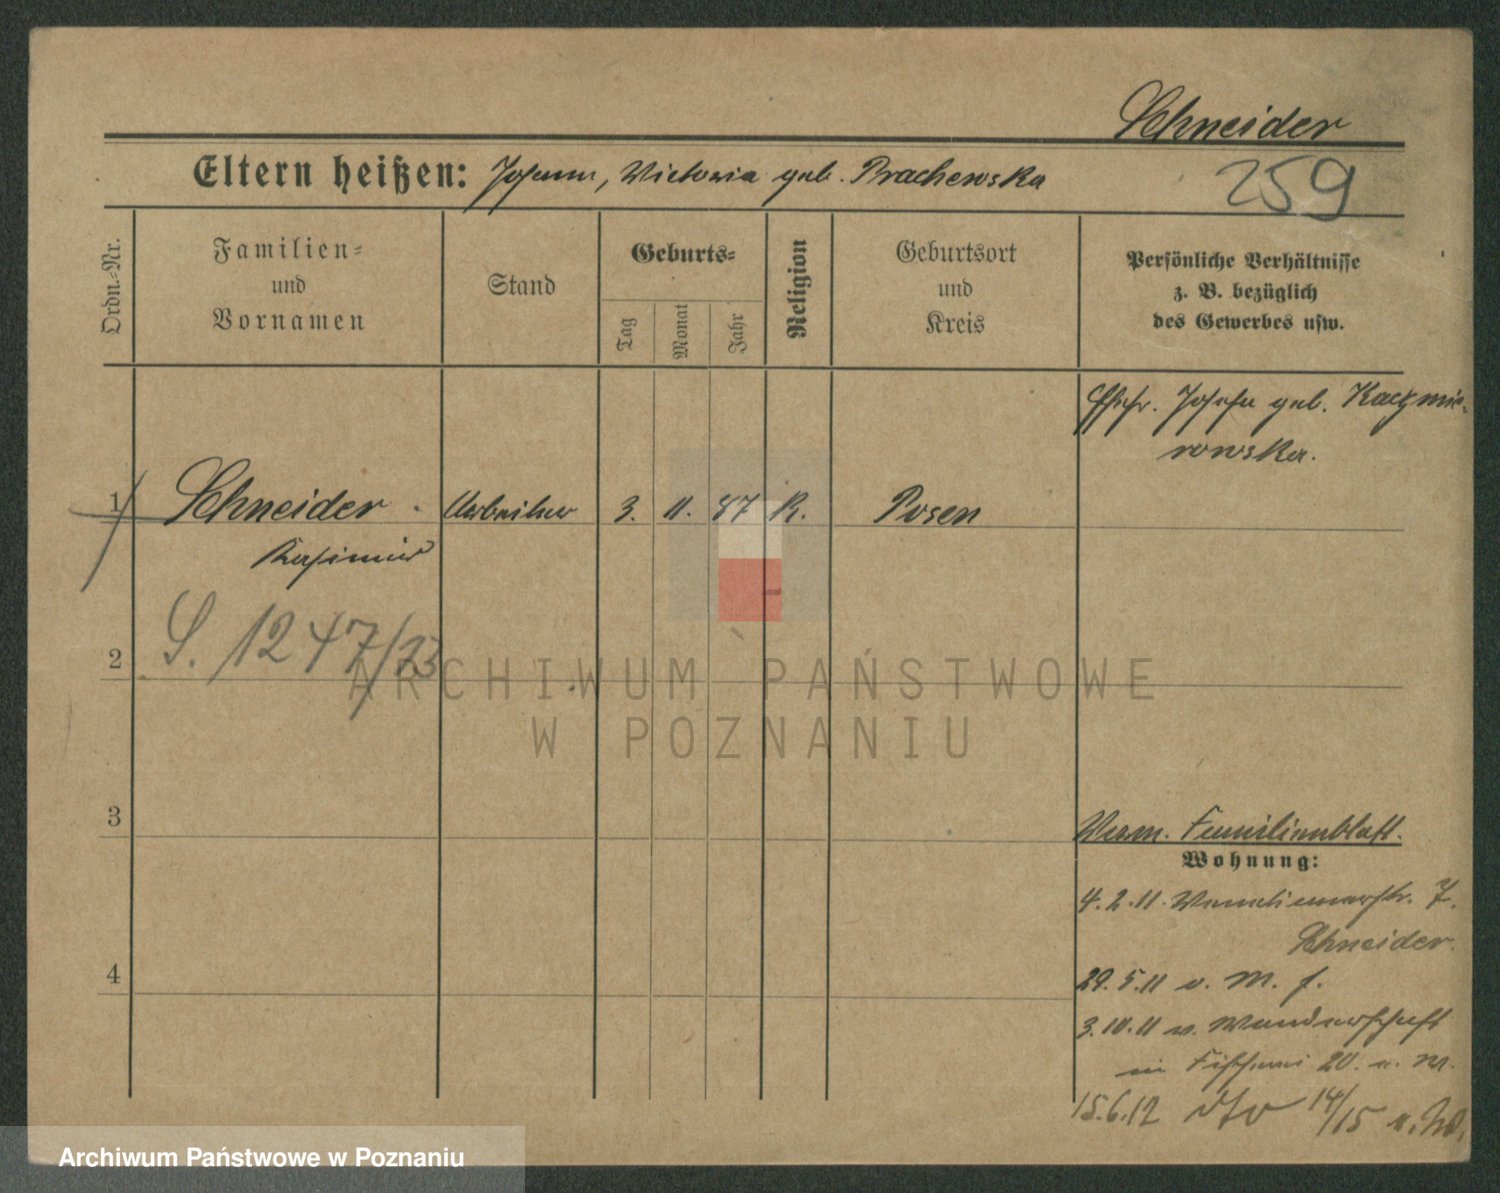 Schneider
Eltern heißen: Johann, Victoria geb. Prachewska
259
Ordn.-Nr.
Familien-
und
Vornamen
Stand
Geburts-
Tag
Monat
Jahr
Religion
Geburtsort
und
Kreis
Persönliche Verhältnisse
z. B. bezüglich
des Gewerbes usw.
Ehefr. Josefa geb. Kaczmie-
rowska.
1 Schneider Arbeiter 3. 11. 87 K. Posen
Kasimir
S. 1247/
2
ARCHIWUM PAŃSTWOWE
W POZNANIU
3
Verm. Familienblatt.
Wohnung:
4.2.11. 7.
Schneider.
4
29.5.11 v. M. f.
3.10.11 v. Wanderschaft
in Fischerei 20. v. M.
15.6.12 dto 14/15
Archiwum Państwowe w Poznaniu